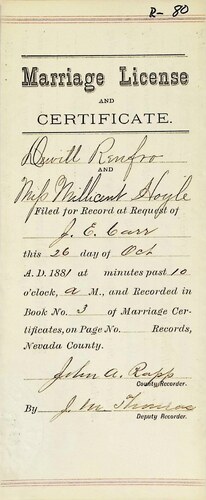 R-80
Marriage License
AND
CERTIFICATE.
Dewitt Renfro
AND
Miss Millicent Hoyle
Filed for Record at Request of
J. E. Carr
this 26 day of Oct
A. D. 1881 at minutes past 10
o'clock, A M., and Recorded in
Book No. 3 of Marriage Cer-
tificates, on Page No. Records,
Nevada County.
John A. Rapp
County Recorder.
By J. M. Thomas
Deputy Recorder.